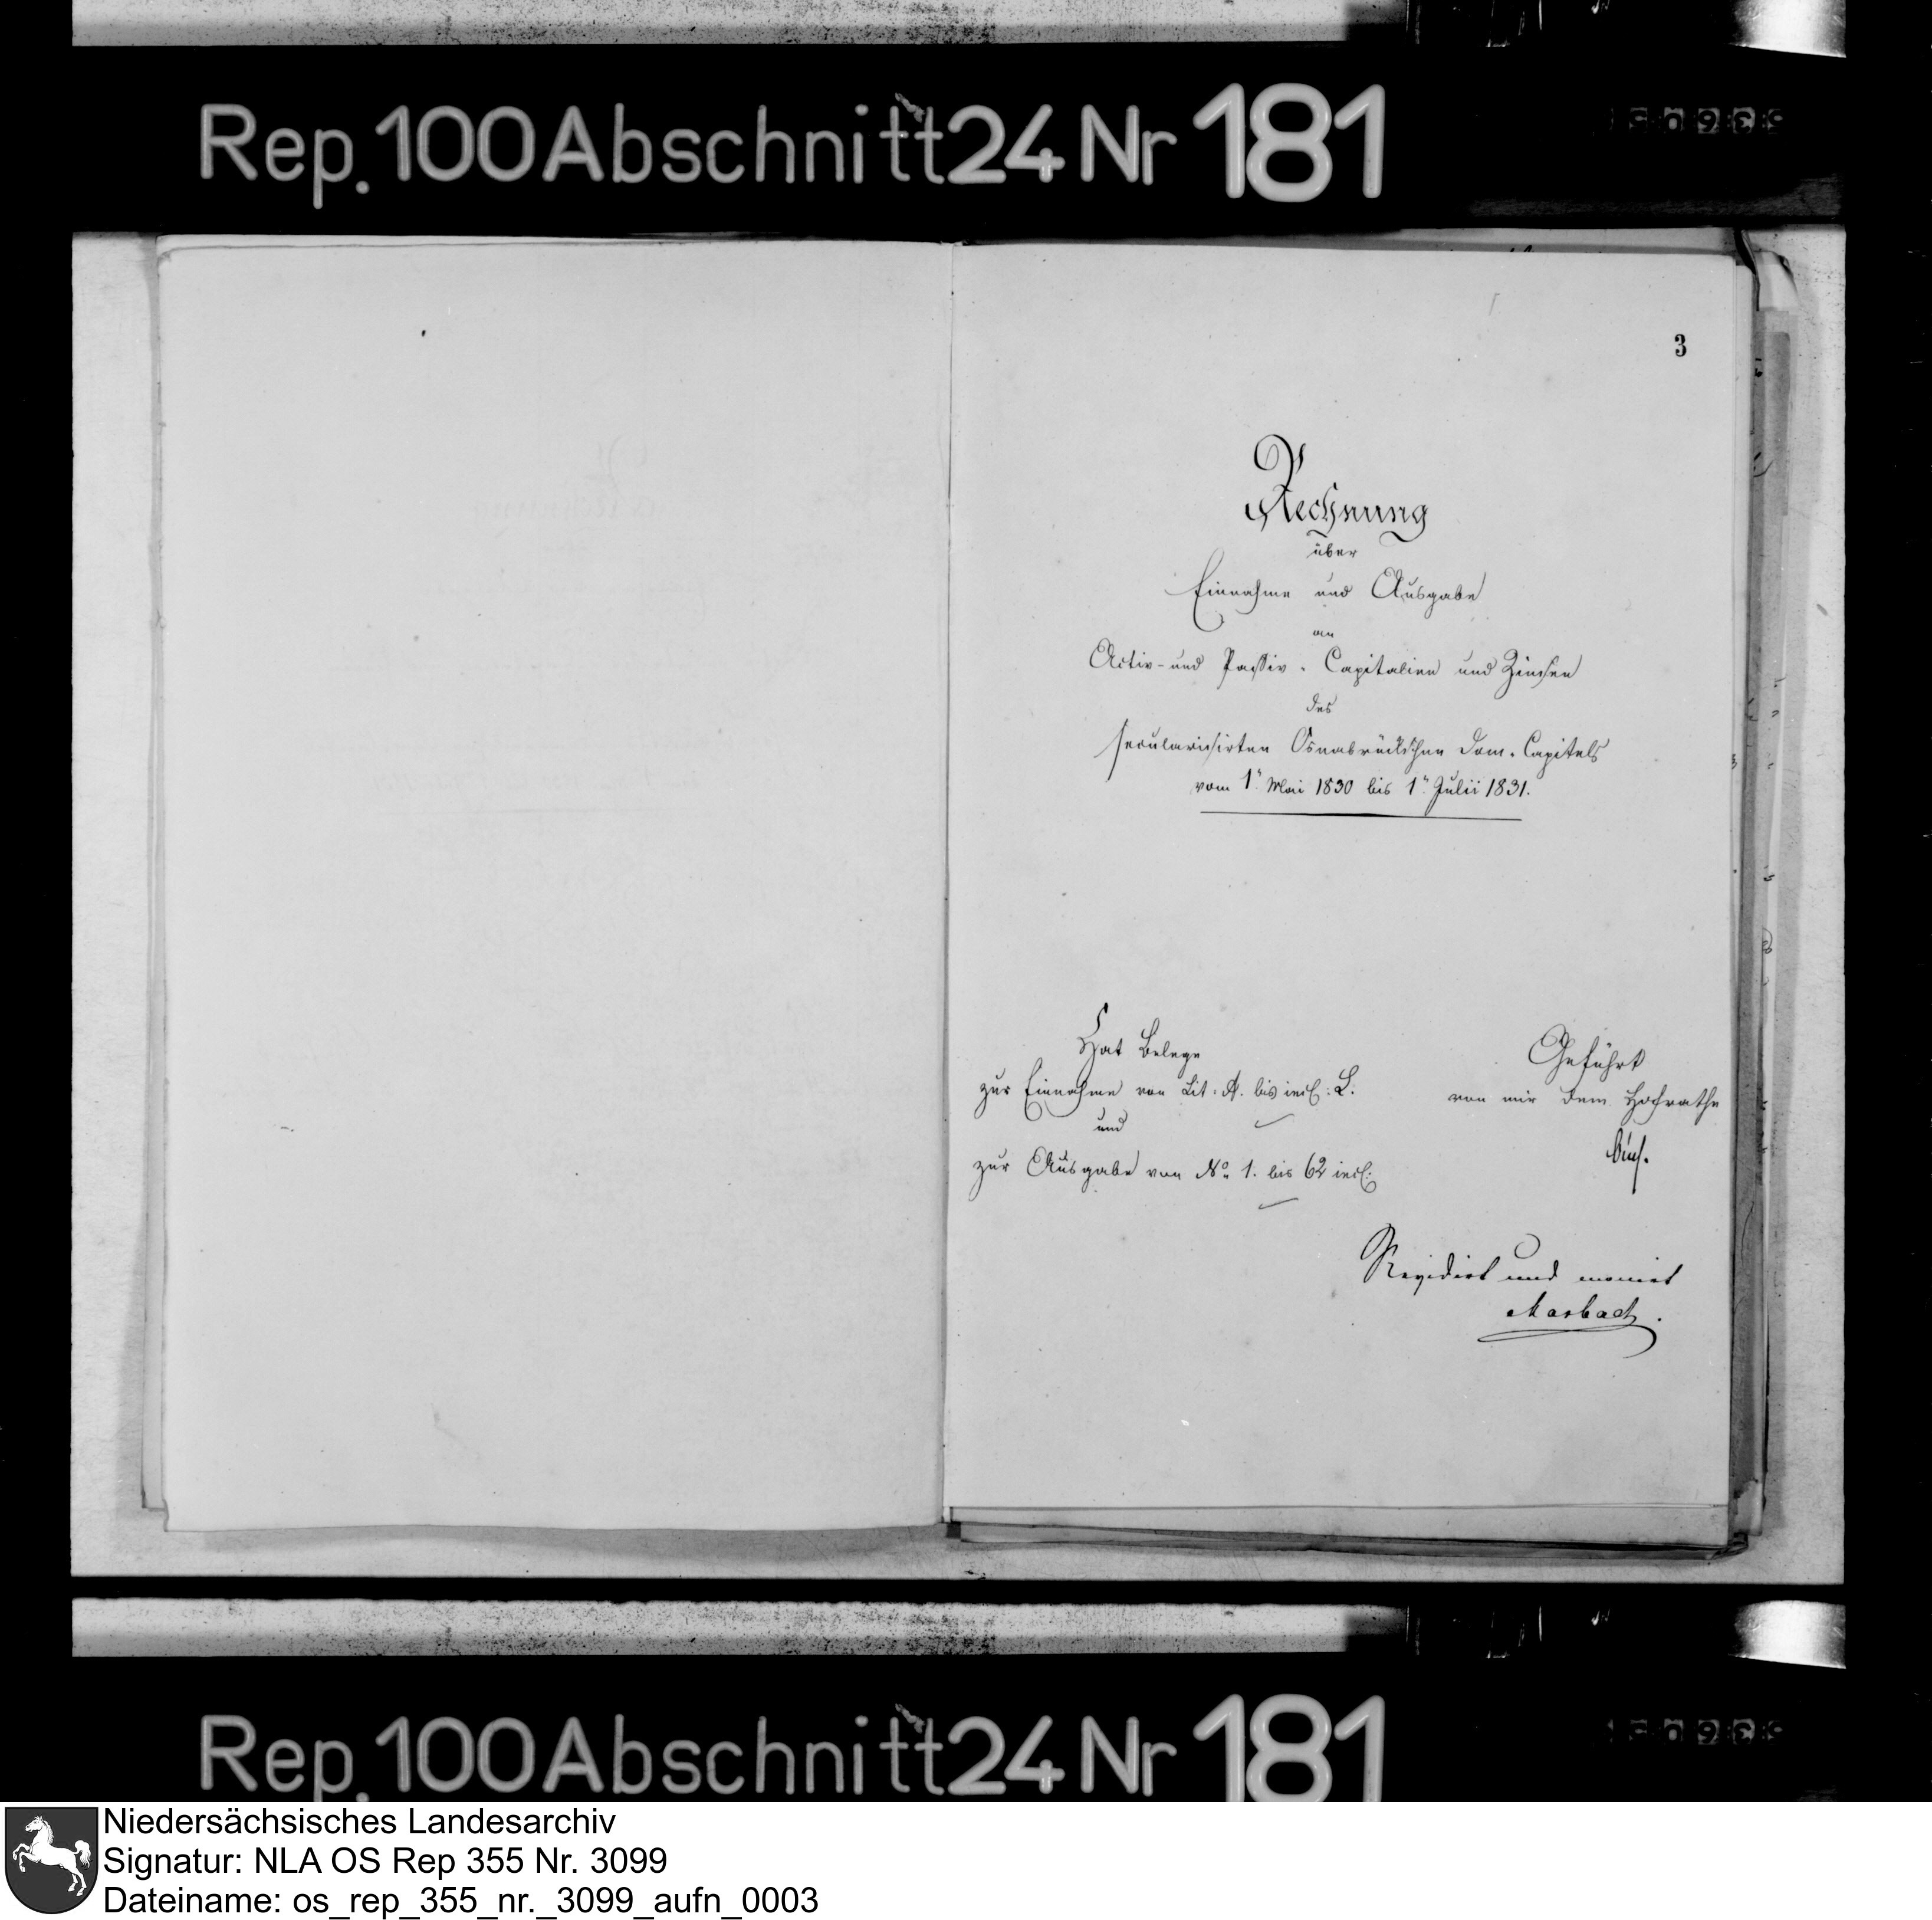 Rep. 100 Abschnitt 24 Nr 181
3
Rechnung
über
Einnahme und Ausgabe
an
Activ- und Passiv-Capitalien und Zinsen
des
secularisirten Osnabrückschen Dom-Capitels
vom 1n Mai 1830 bis 1n Julii 1831.
Hat Belege
zur Einnahme von Lit: A. bis incl: L.
und
zur Ausgabe von No 1. bis 62 incl:
Geführt
von mir dem Hofrathe
Revidirt und monirt
Marbach.
Rep. 100 Abschnitt 24 Nr 181
Niedersächsisches Landesarchiv
Signatur: NLA OS Rep 355 Nr. 3099
Dateiname: os_rep_355_nr._3099_aufn_0003